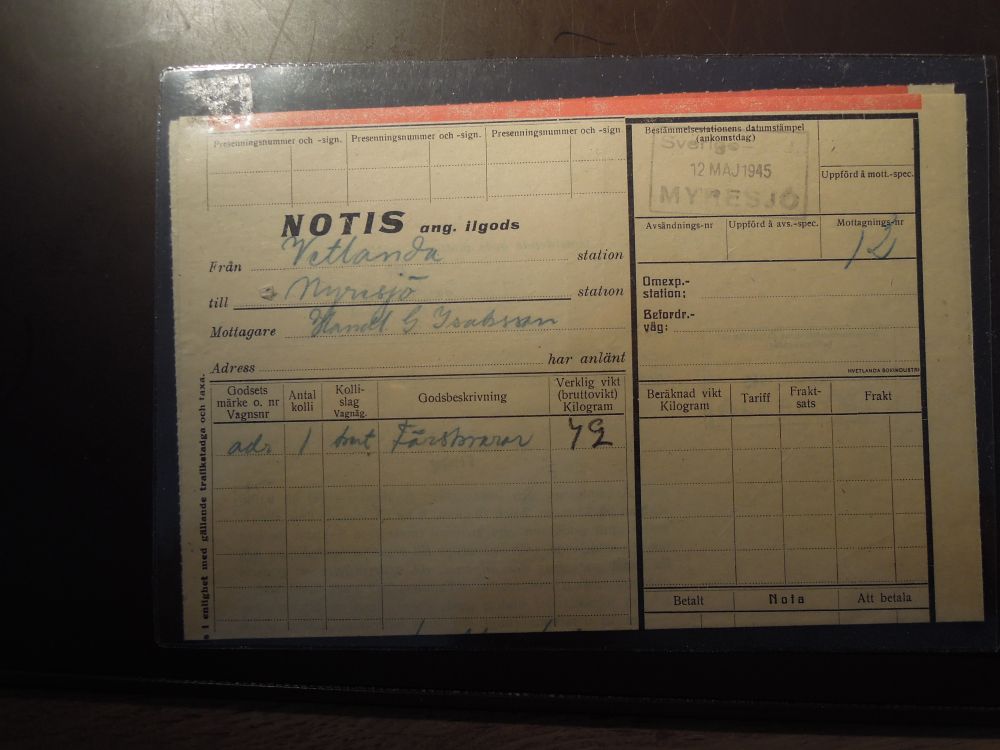 Presenningsnummer och -sign. Presenningsnummer och -sign. Presenningsnummer och -sign.
Bestämmelsestationens datumstämpel
(ankomstdag)
Sverige
12 MAJ 1945
MYRESJÖ
Uppförd å mott.-spec.
NOTIS ang. ilgods
Avsändnings-nr Uppförd å avs.-spec. Mottagnings-nr
12
Från Vetlanda station
till Myresjö station
Mottagare Handl G Isaksson
Adress har anlänt
Omexp.-
station:
Befordr.-
väg:
HVETLANDA BOKINDUSTRI
Godsets
märke o. nr
Vagnsnr
Antal
kolli
Kolli-
slag
Vagnäg.
Godsbeskrivning
Verklig vikt
(bruttovikt)
Kilogram
Beräknad vikt
Kilogram
Tariff
Frakt-
sats
Frakt
adr 1 Färskvaror
Betalt Nota Att betala
i enlighet med gällande trafikstadga och taxa.